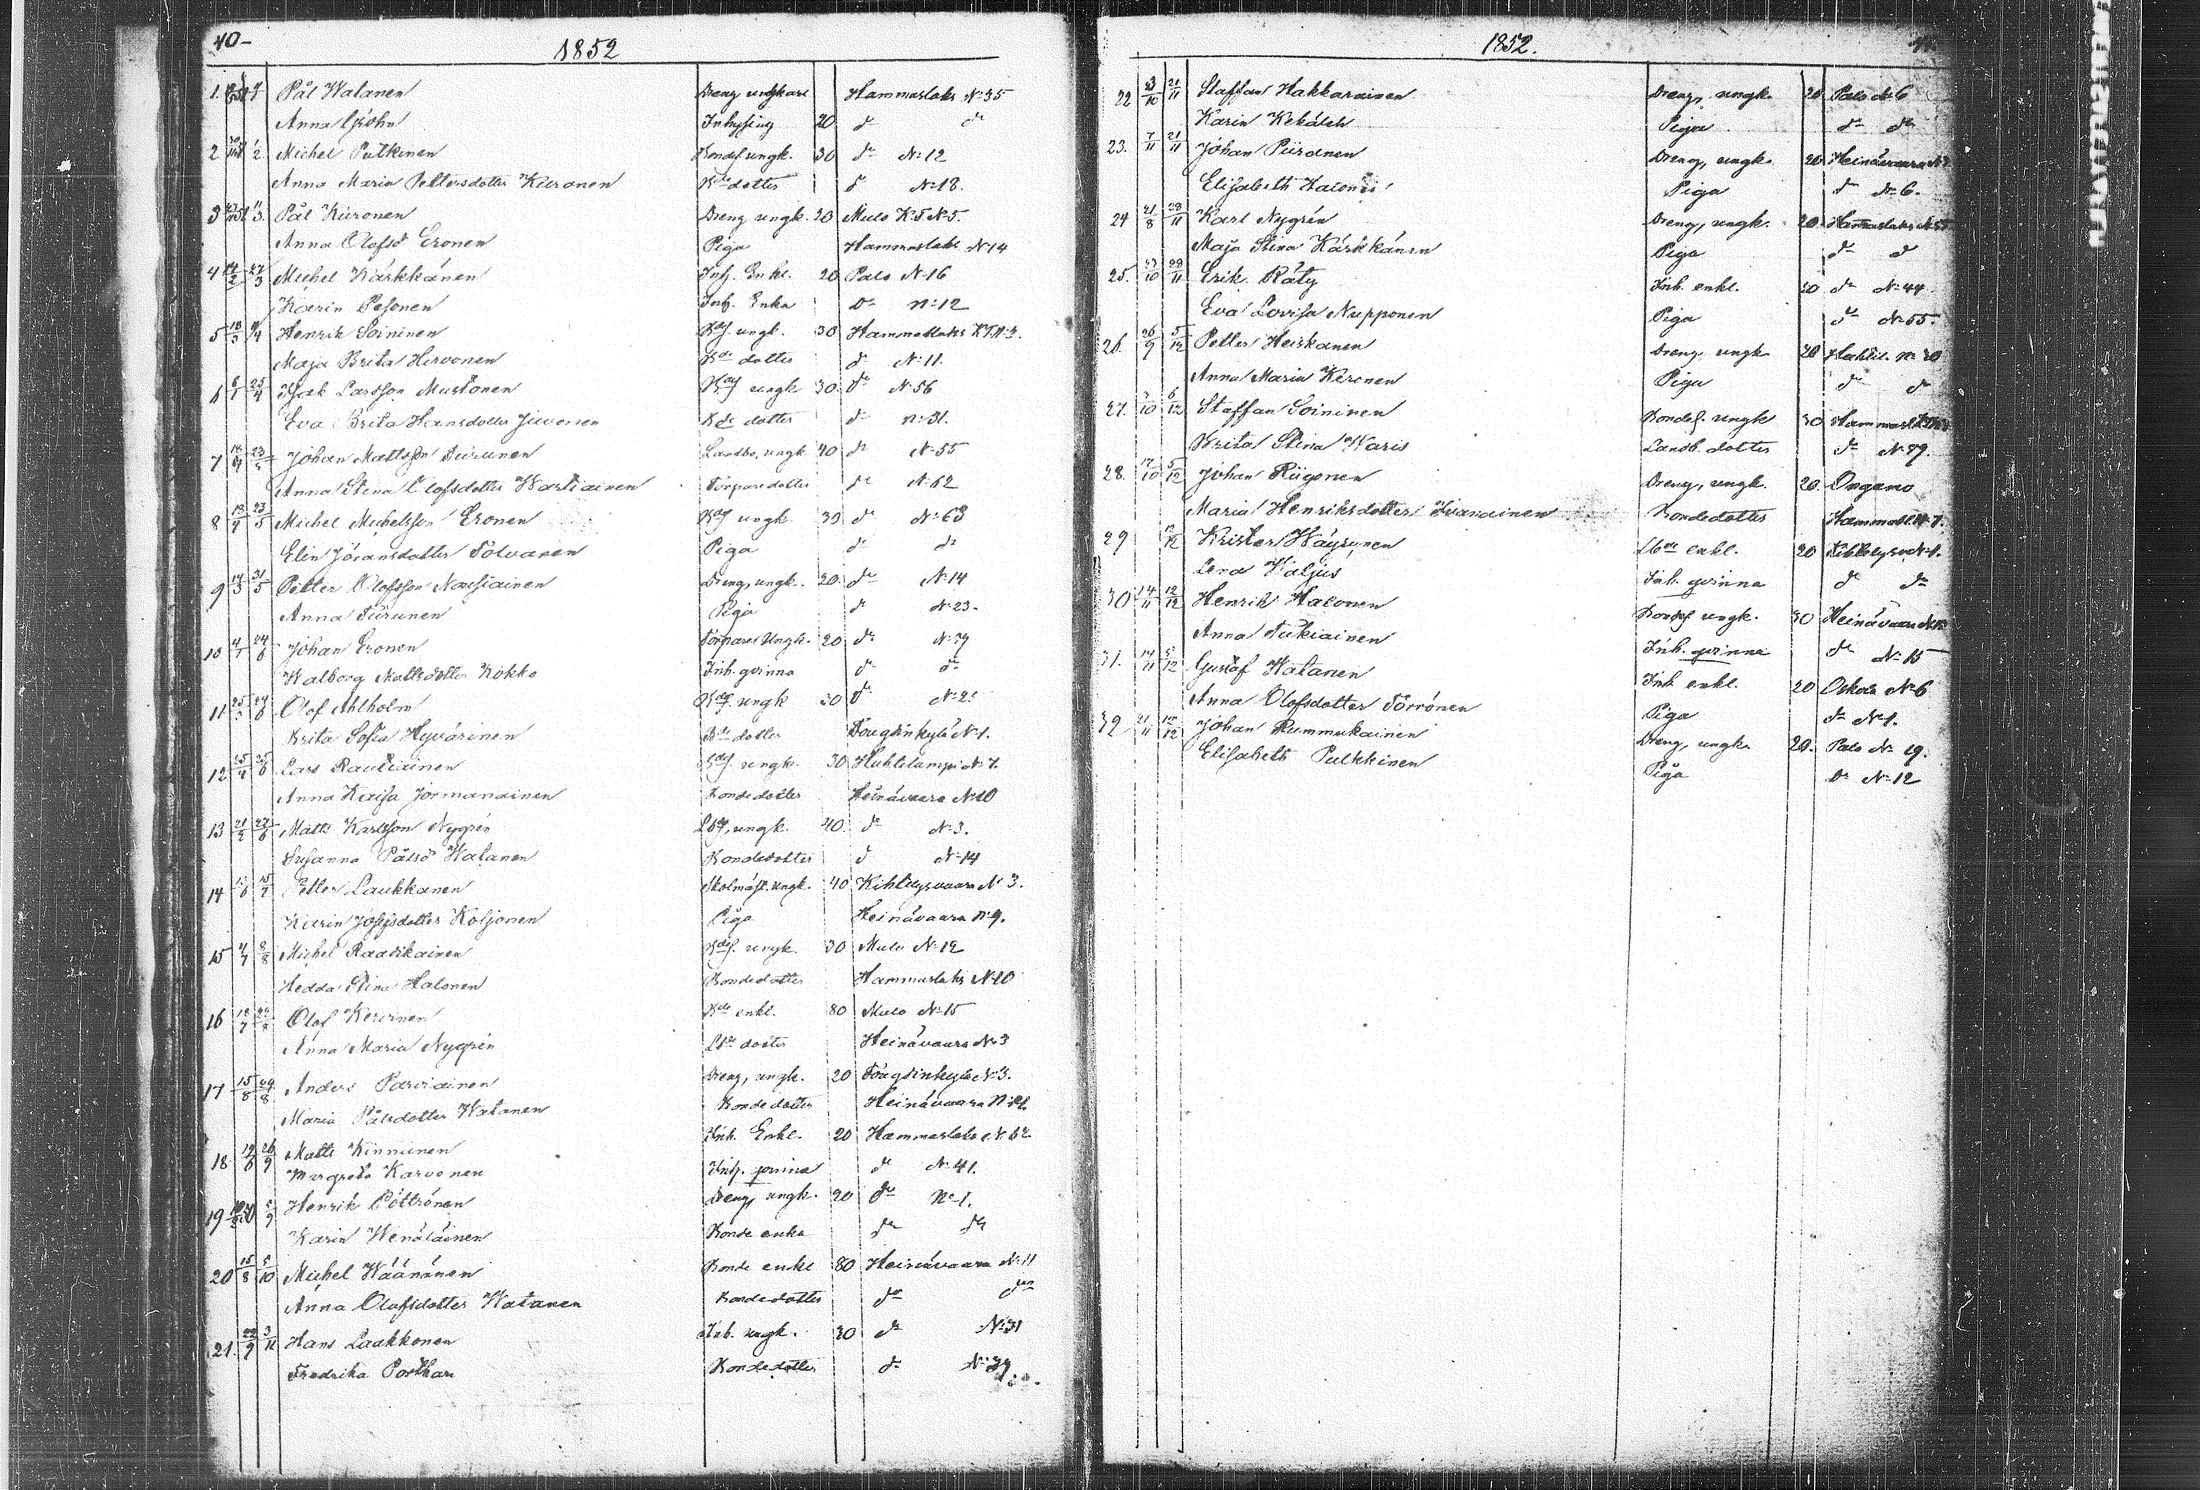 40
1852
1. Pål Watanen Dreng ungkarl Hammaslaks No 35
Anna Gröhn Inhysing 20 do do
2 1/2 Michel Pulkinen Bondes. ungk. 30 do No 12
Anna Maria Pettersdotter Kiironen Bde dotter d No 18.
3 11/3 Pål Kiironen Dreng ungk. 20 Mulo No 5.
Anna Olofsd Eronen Piga Hammaslaks No 14
4 14/2 27/3 Michel Kärkkänen Inh. Enkl. 20 Palo No 16
Karin Pesonen Inh. Enka Do No 12
5 18/3 /4 Henrik Soininen Bdes ungk. 30 Hammaslaks
Maja Brita Hirvonen Bde dotter d No 11.
6 25/4 Isak Larsson Mustonen Bdes ungk 30 do No 56
Eva Brita Hansdotter Juvonen Bde dotter do No 31.
7 23/5 Johan Mattsson Turunen Landbo, ungk 40 do No 55
Anna Stina Olofsdotter Wartiainen Torparedotter do No 62
8 23/5 Michel Michelsson Eronen Bdes ungk 30 do No 63
Elin Jöransdotter Tolvanen Piga do do
9 14/3 31/5 Petter Olofsson Nousiainen Dreng, ungk. 20 do No 14
Anna Turunen Piga do No 23.
10 24/6 Johan Eronen Torpares Ungk. 20 do No 79
Walborg Mattsdotter Kokko Inh. qvinna do do
11 25/3 24/6 Olof Ahlholm Bdes. ungk 30 do No 2
Brita Sofia Hyvärinen Bde dotter No 1.
12 25/4 25/6 Lars Rautiainen Bdes. ungk. 30 Huhtilampi No 7.
Anna Kaisa Jormanainen Bondedotter Heinävaara No 10
13 21/2 27/6 Matts Karlsson Nygrén Lbs, ungk. 40 do No 3.
Susanna Pålsd Watanen Bondedotter d No 14
14 15/7 Petter Laukkanen Skolmäst. ungk. 40 Kihtelysvaara No 3.
Karin Josefsdotter Koljonen Piga Heinävaara No 9.
15 4/7 8/8 Michel Raatikainen Bdes. ungk. 30 Mulo No 12
Hedda Stina Halonen Bondedotter Hammaslaks No 10
16 18/7 Olof Keronen Bde enkl. 80 Mulo No 15
Anna Maria Nygrén Lbo dotter Heinävaara No 3
17 15/8 29/8 Anders Parviainen Dreng, ungk. 20 No 3.
Maria Pålsdotter Watanen Bondedotter Heinävaara No 14
18 19/6 26/9 Matts Kinnunen Inh. Enkl. 20 Hammaslaks No 62
Margreta Karvonen Inh. qvinna do No 41.
19 /9 Henrik Pöttrönen Dreng, ungk. 20 do No 1.
Karin Wenäläinen Bonde enka do do
20 15/8 5/10 Michel Wäänänen Bonde enkl 80 Heinävaara No 11
Anna Olofsdotter Watanen Bondedotter do do
21. 22/9 3/11 Hans Laakkonen Inh. ungk. 30 do No 31
Fredrika Porthan Bondedotter do No 39
1852.
22 3/10 21/11 Staffan Hakkarainen Dreng, ungk. 20 Palo No 6
Karin Kekäleh Piga do do
23. 7/11 21/11 Johan Piiranen Dreng, ungk. 20 Heinävaara
Elisabeth Halonen Piga do No 6.
24 21/8 28/11 Karl Nygrén Dreng, ungk. 20 Hammaslaks
Maja Stina Kärkkänen Piga do d
25. 23/10 28/11 Erik Räty Inh. enkl. 20 do No 44
Eva Lovisa Nupponen Piga do No 55.
26. 26/9 5/12 Petter Heiskanen Dreng, ungk 20 No 20
Anna Maria Keronen Piga do do
27. /10 6/12 Staffan Soininen Bondes. ungk 30 Hammasl.
Brita Stina Waris Landb. dotter do No 79.
28. 7/10 5/12 Johan Riigonen Dreng, ungk. 20. Ongamo
Maria Henriksdotter Ivanainen Bondedotter Hammasl. No 7.
29 12/12 Krister Häyrynen Lbos enkl. 20 Kihtelysv No 1.
Lena Waljus Inh. qvinna do do
30 14/11 12/12 Henrik Halonen Bondes ungk. 30 Heinävaara
Anna Tukiainen Inh. qvinna do No 15
31. 14/11 5/12 Gustaf Watanen Inh. enkl. 20 Oskola No 6
Anna Olofsdotter Törrönen Piga do No 1.
32 21/11 12/12 Johan Rummukainen Dreng, ungk. 20. Palo No 19.
Elisabeth Pulkkinen Piga Do No 12